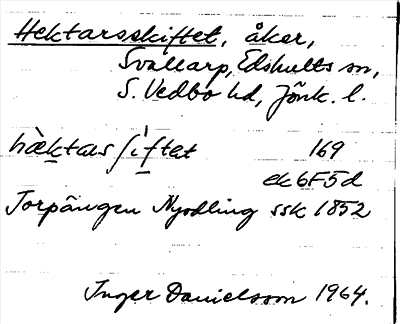 Hektarsskiftet, åker,
Svallarp, Edshults sn,
S. Vedbo hd, Jönk. l.
hὲktas ʃìftet 169
ek 6F5d
Torpängen Nyodling ssk 1852
Inger Danielsson 1964.